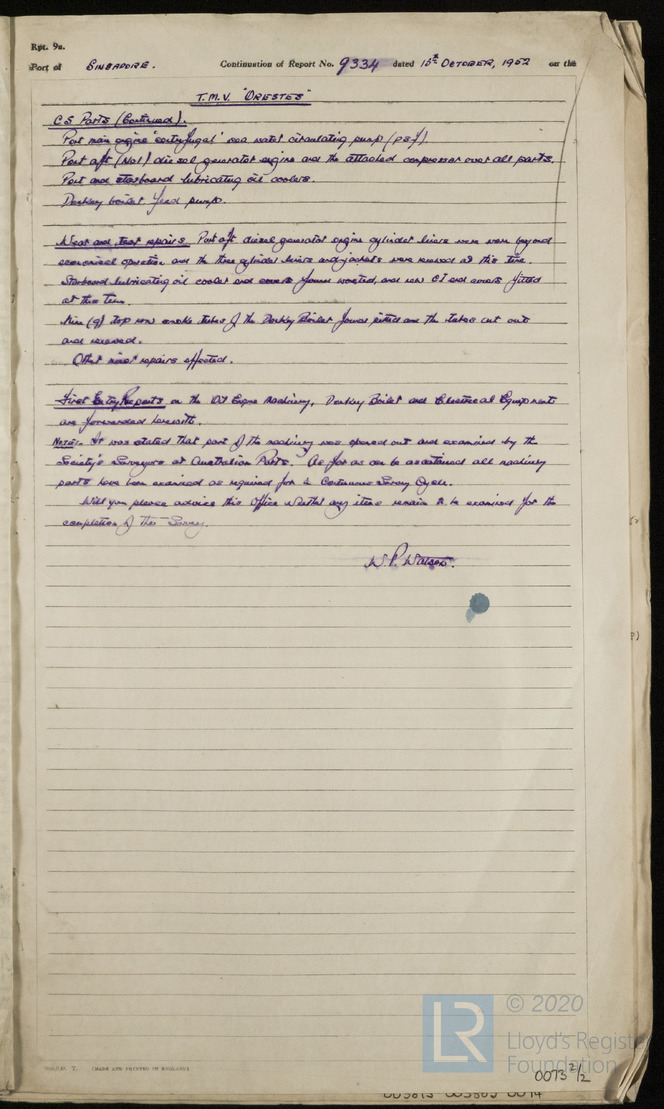 Rpt. 9a.
Port of SINGAPORE. Continuation of Report No. 9334 dated 15th OCTOBER, 1952 on the
T.M.V. "ORESTES"
CS Parts (Continued).
Port main engine 'centrifugal' sea water circulating pump (p87).
Port aft (No1) diesel generator engine and the attached compressor over all parts.
Port and starboard lubricating oil coolers.
Donkey boiler feed pump.
Wear and tear repairs. Port aft diesel generator engine cylinder liners were worn beyond
economical operation and the three cylinder liners and jackets were renewed at this time.
Starboard lubricating oil cooler end covers found wasted, and new CI end covers fitted
at this time.
Nine (9) top row smoke tubes of the Donkey Boiler found pitted and the tubes cut out
and renewed.
Other minor repairs effected.
First Entry Reports on the Oil Engine Machinery, Donkey Boiler and Electrical Equipment
are forwarded herewith.
NOTE:- It was stated that part of the machinery was opened out and examined by the
Society's Surveyors at Australian Ports. As far as can be ascertained all machinery
parts have been examined as required for a Continuous Survey Cycle.
Will you please advise this Office whether any items remain to be examined for the
completion of this Survey.
W. P. Watson.
(MADE AND PRINTED IN ENGLAND)
LR
© 2020
Lloyd's Registe
Foundation
0073 2/2